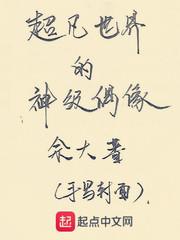 超凡世界
的
神级偶像
佘大萱
(手写封面)
起 起点中文网